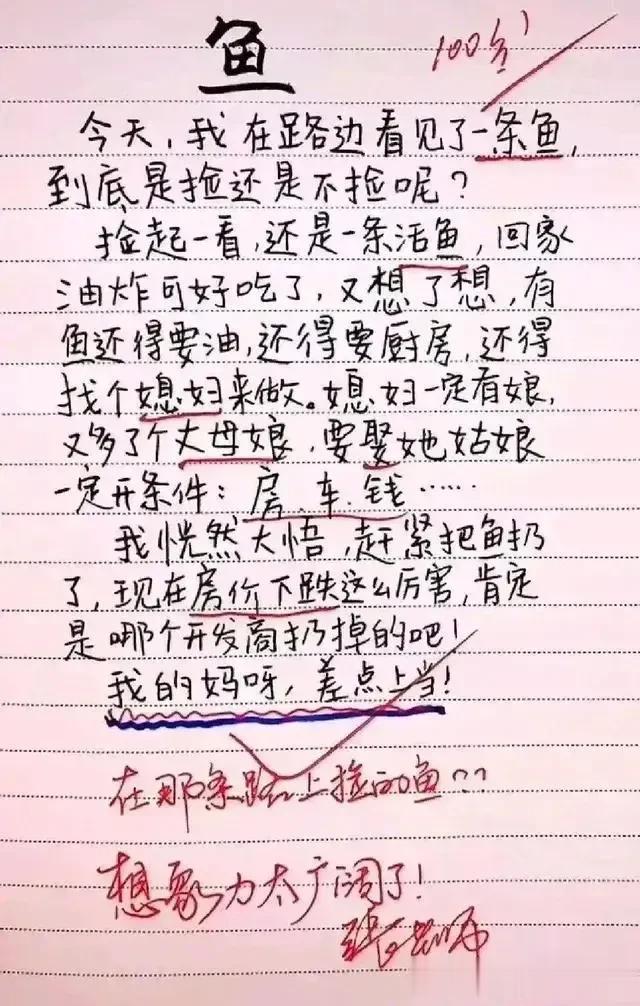 鱼
100分
今天,我在路边看见了一条鱼,
到底是捡还是不捡呢?
捡起一看,还是一条活鱼,回家
油炸可好吃了,又想了想,有
鱼还得要油,还得要厨房,还得
找个媳妇来做。媳妇一定有娘,
又多了个丈母娘,要娶她姑娘
一定开条件:房.车.钱……
我恍然大悟,赶紧把鱼扔
了,现在房价下跌这么厉害,肯定
是哪个开发商扔掉的吧!
我的妈呀,差点上当!
在那条路上捡的鱼??
想象力太广阔了!
张老师